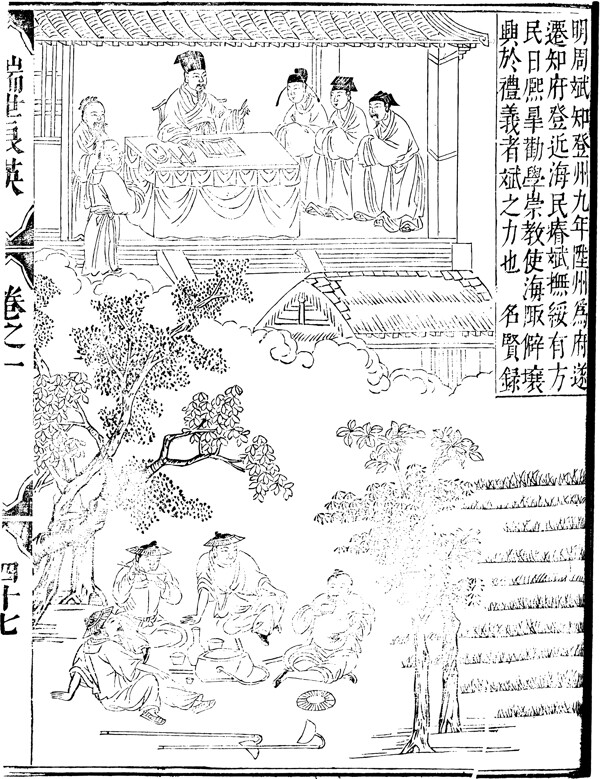 明周斌知登州九年陞州爲府遂
遷知府登近海民椿斌撫綏有方
民日熈皞勸學崇教使海陬僻壤
興於禮義者斌之力也　名賢録
瑞世良英
卷之一
四十七